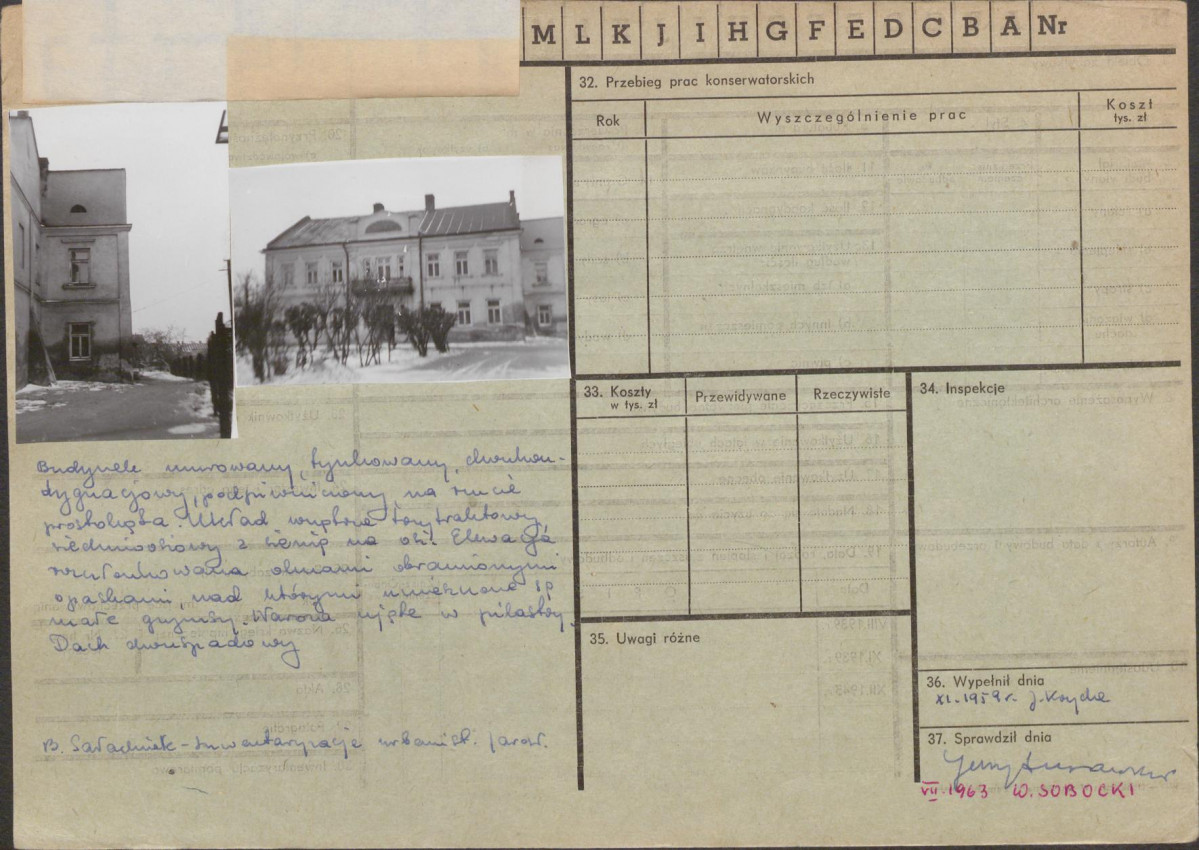 M L K J I H G F E D C B A Nr
32. Przebieg prac konserwatorskich
Rok
Wyszczególnienie prac
Koszt
tys. zł
33. Koszty
w tys. zł
Przewidywane
Rzeczywiste
34. Inspekcje
Budynek murowany, tynkowany, dwukon-
dygnacjowy, podpiwniczony, na rzucie
prostokąta. Układ wnętrz
siedmioosiowy z sienią na osi. Elewacja
rozczłonkowana oknami obramionymi
opaskami, nad którymi umieszczone są
małe gzymsy. Naroża ujęte w pilastry.
Dach dwuspadowy
35. Uwagi różne
36. Wypełnił dnia
XI. 1959 r. J.
B. - Inwentaryzacja urbanist. Jarosł.
37. Sprawdził dnia
Jerzy
VII. 1963 W. SOBOCKI